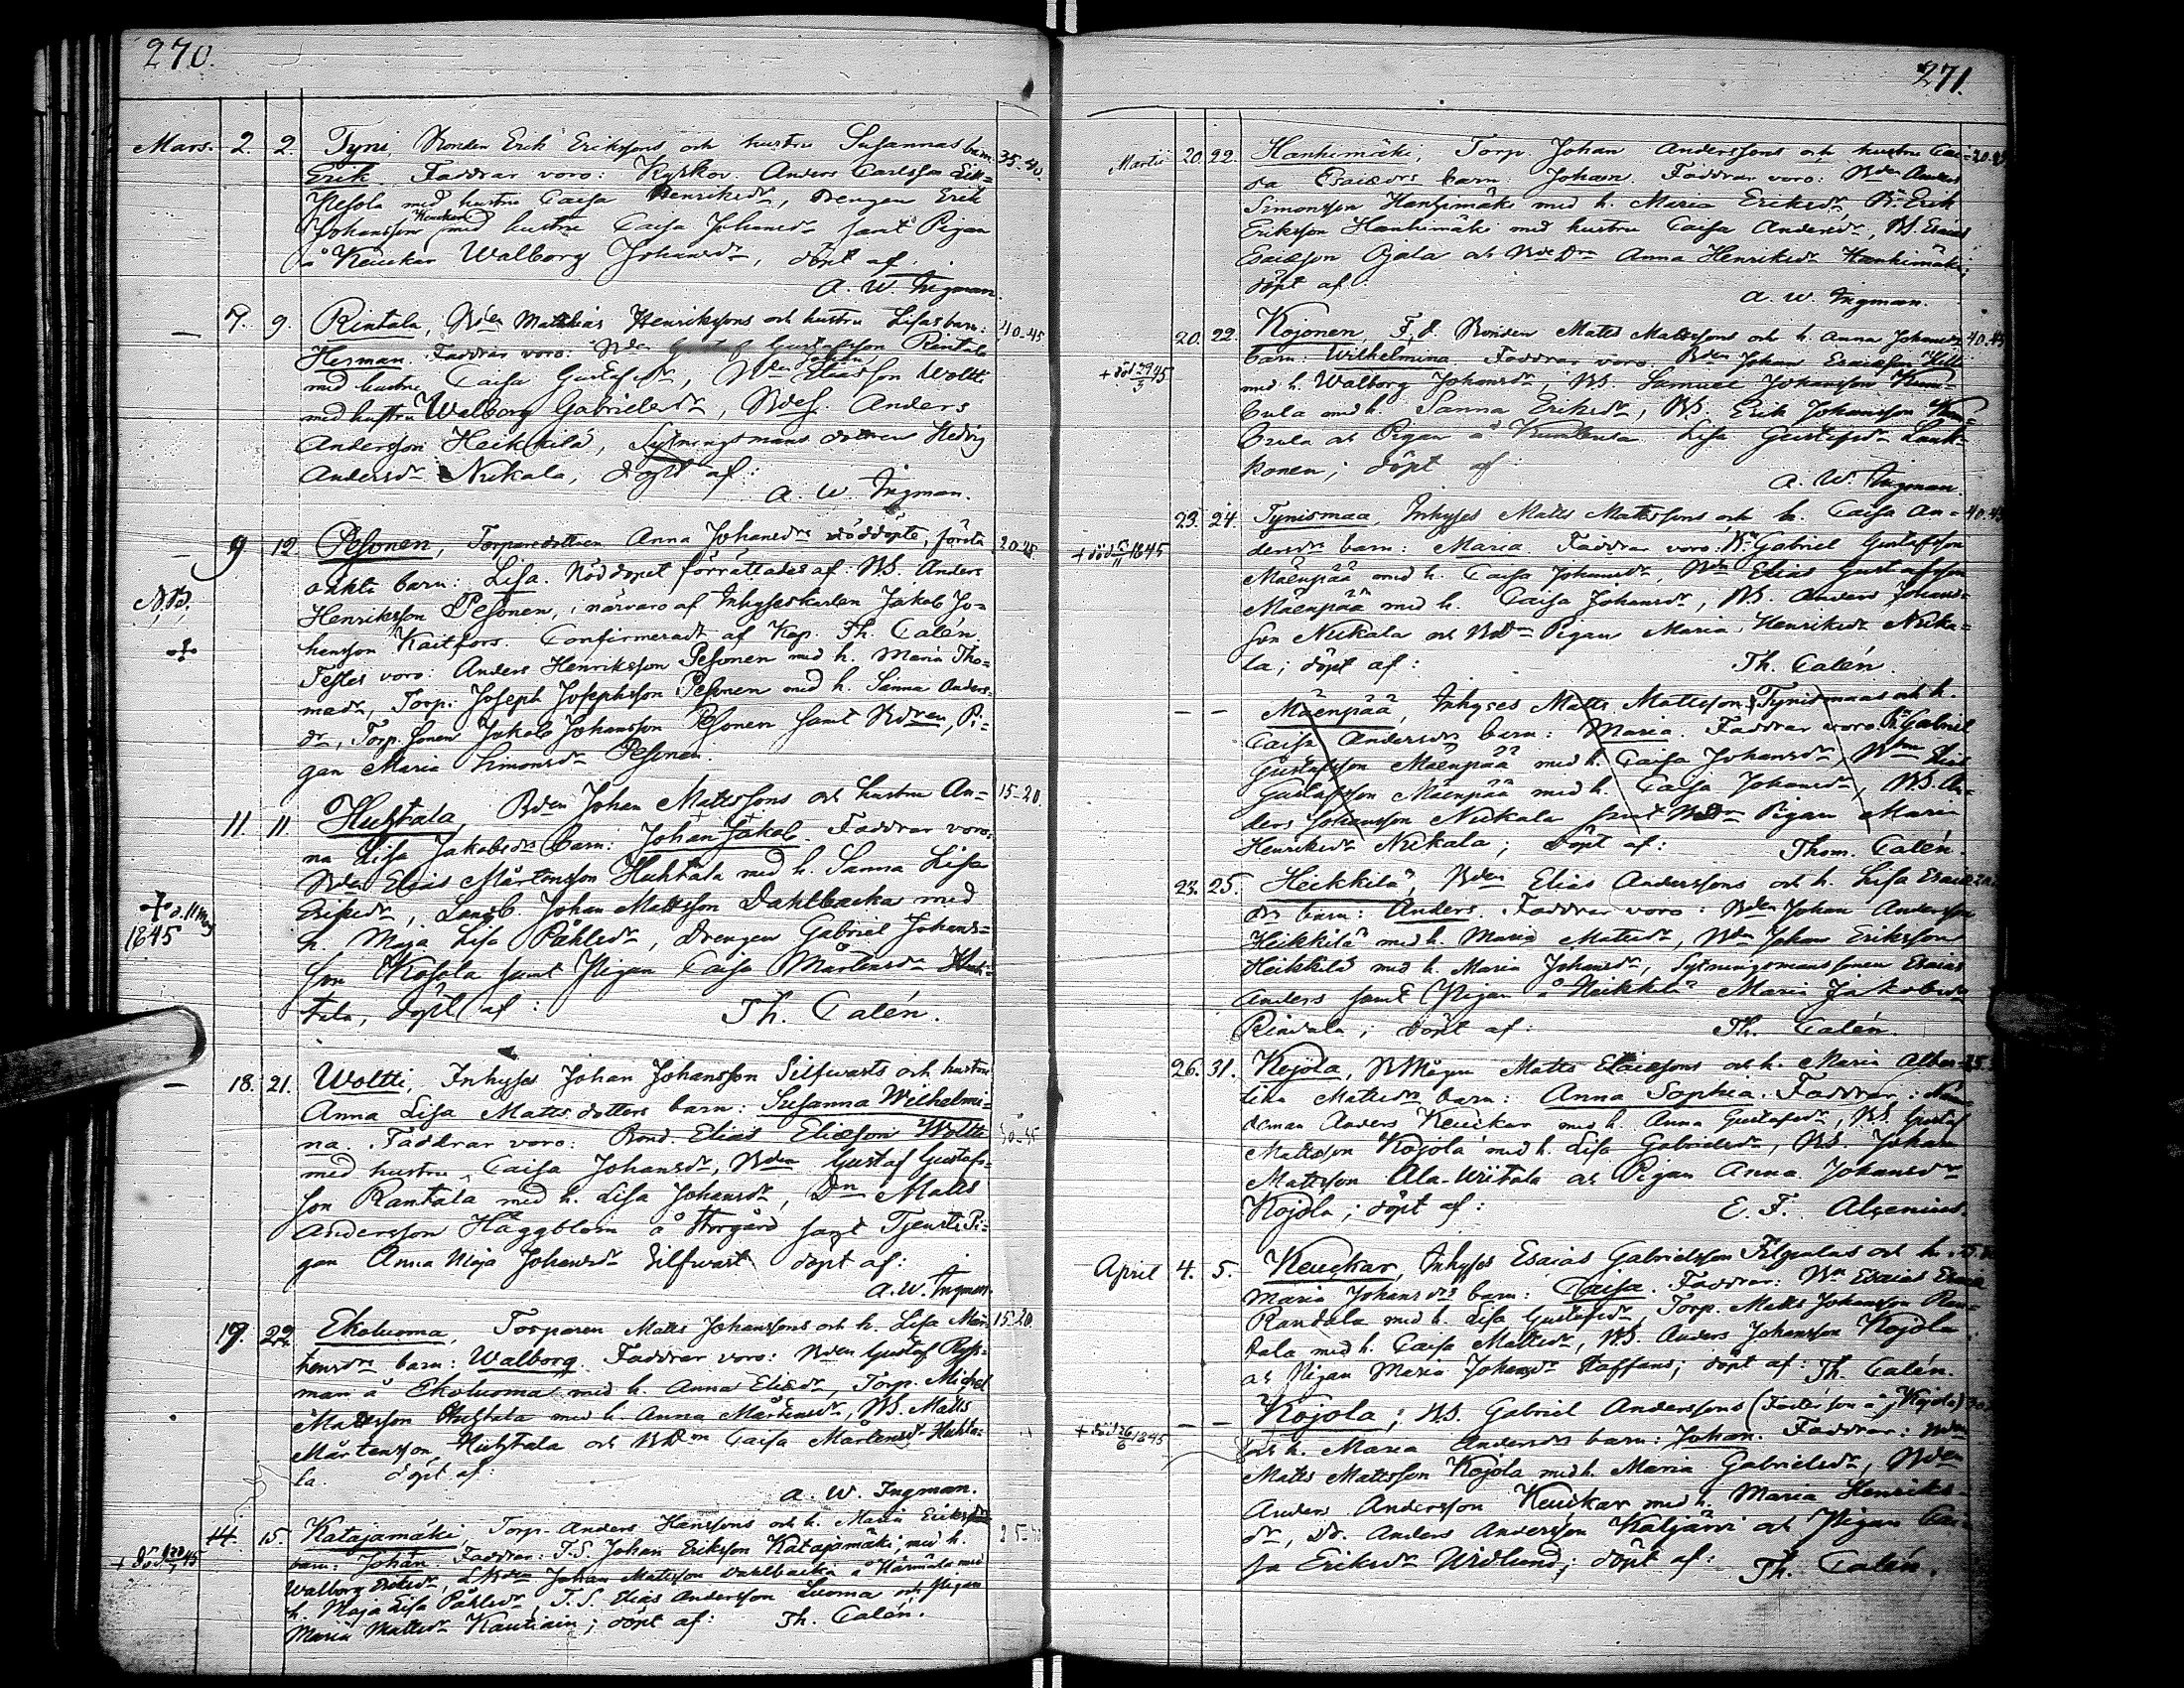 270.
Mars. 2. 2. Tyni, Bonden Erik Erikssons och hustru Susannas barn: 35-40.
Erik. Faddrar voro: Kyrkov. Anders Carlsson
Pesola med hustru Caisa Henriksdr, Drengen Erik
Johansson Keuckar med hustru Caisa Johansdr samt Pigan
å Keuckar Walborg Johansdr, döpt af.
A. W. Ingman.
7. 9. Rintala, Bden Matthias Henrikssons och hustru Lisas barn: 40-45
Herman. Faddrar voro: Bden Gustaf Gustafsson Rintala
med hustru Caisa Gustafsdr, Bden Johan Eliasson Woltti
med hustru Walborg Gabrielsdr, Anders
Andersson Heikkilä, Sytningsmans dottren Hedvig
Andersdr Nukala, döpt af:
A. W. Ingman.
9 12 Pesonen, Torparedottren Anna Johansdrs nöddöpte, första 20-25
oäkta barn: Lisa. Nöddopet förrättades af: BS. Anders
N.B. Henriksson Pesonen, i närvaro af Inhyseskarlen Jakob Jo=
hansson Kaitfors. Confirmeradt af Kap. Th. Calén.
Testes voro: Anders Henriksson Pesonen med h. Maria Tho=
masdr, Torp. Joseph Josephsson Pesonen med h. Sanna Anders=
dr, Torp. sonen Jakob Johansson Pesonen samt Bdren, Pi=
gan Maria Simonsdr Pesonen.
11. 11 Huhtala, Bden Johan Mattssons och hustru An= 15-20.
na Lisa Jakobsdrs barn: Johan Jakob. Faddrar voro:
Bden Elias Mårtensson Huhtala med h. Sanna Lisa
Eriksdr, Landb. Johan Mattsson Dahlbacka med
+ d. 11 Maj
1845 h. Maja Lisa Påhlsdr, Drengen Gabriel Johans=
son Kojola samt Pigan Caisa Mårtensdr Huh=
tala, döpt af: Th. Calén.
18. 21. Woltti, Inhyses Johan Johansson Silfwasts och hustru
Anna Lisa Matts dotters barn: Susanna Wilhelmi=
na. Faddrar voro: Bond. Elias Eliæson Woltti 40-45
med hustru Caisa Johansdr, Bden Gustaf Gustafs=
son Rantala med h. Lisa Johansdr, Dn Matts
Andersson Häggblom å Storgård samt Tjenste Pi=
gan Anna Maja Johansdr Silfwast döpt af:
A. W. Ingman.
19. 22. Ekoluoma, Torparen Matts Johanssons och h. Lisa Mår= 15-20.
tensdrs barn: Walborg. Faddrar voro: Bden Gustaf
man å Ekoluoma med h. Anna Eliædr, Torp. Michel
Mattsson Huhtala med h. Anna Mårtensdr, BS. Matts
Mårtensson Huhtala och BDrn Caisa Mårtensdr Huhta=
la. döpt af:
A. W. Ingman.
14. 15. Katajamäki, Torp. Anders Hanssons och h. Maria Eriksdrs 25-30
barn: Johan. Faddrar: T.S. Johan Eriksson Katajamäki, med h.
Walborg Eriksdr, Johan Mattsson Dahlbacka å Härmälä med
h. Maja Lisa Påhlsdr, T.S. Elias Andersson Luoma och Pigan
Maria Mattsdr Kautiain; döpt af: Th. Calén.
271.
Martii 20. 22. Hanhimäki, Torp. Johan Anderssons och hustru Cai=
sa Esaiædrs barn: Johan. Faddrar voro: Bden Anders
Simonsson Hanhimäki med h. Maria Eriksdr, Bn Erik
Eriksson Hanhimäki med hustru Caisa Andersdr, BS. Esaias
Esaiæson Ojala och BdeDrn Anna Henriksdr Hanhimäki;
döpt af
A. W. Ingman.
20. 22. Kojonen, F. d. Bonden Matts Mattssons och h. Anna Johansdrs 40.45
barn: Wilhelmina. Faddrar voro: Bden Johan Esaiæson
+ död 29/5 45 med h. Walborg Johansdr, BS. Samuel Johansson
bula med h. Sanna Eriksdr, BS. Erik Johansson
bula och Pigan å Lisa Gustafsdr
konen; döpt af:
A. W. Ingman.
23. 24. Tynismaa, Inhyses Matts Mattssons och h. Caisa An= 40.45
dersdrs barn: Maria. Faddrar voro: Bn Gabriel Gustafsson
Mäenpää med h. Caisa Johansdr, Bden Elias Gustafsson
Mäenpää med h. Caisa Johansdr, BS. Anders Johans=
son Nukala och BdDrn Pigan Maria Henriksdr Nuka=
la; döpt af: Th. Calén.
— — Mäenpää, Inhyses Matts Mattsson Tynismaas och h.
Caisa Andersdrs barn: Maria. Faddrar voro: Bn Gabriel
Gustafsson Mäenpää med h. Caisa Johansdr, Bden Elias
Gustafsson Mäenpää med h. Caisa Johansdr, BS. An=
ders Johansson Nukala samt BdDrn Pigan Maria
Henriksdr Nukala; döpt af: Thom. Calén.
23. 25. Heikkilä, Bden Elias Anderssons och h. Lisa Esaiæ
drs barn: Anders. Faddrar voro: Bden Johan Andersson
Heikkilä med h. Maria Mattsdr, Bden Johan Eriksson
Heikkilä med h. Maria Johansdr, Sytningsmanssonen Esaias
Anders samt Pigan å Heikkilä Maria Jakobsdr
Rindala; döpt af: Th. Calén.
26. 31. Kojola, BMågen Matts Esaiæsons och h. Maria Alber=
tina Mattsdrs barn: Anna Sophia. Faddrar: Näm=
deman Anders Keuckar med h. Anna Gustafsdr, BS. Gustaf
Mattsson Kojola med h. Lisa Gabrielsdr, BS. Johan
Mattsson Ala-Wiitala och Pigan Anna Johansdr
Kojola; döpt af: E. F. Alcenius.
April 4. 5. Keuckar, Inhyses Esaias Gabrielsson Filpulas och h.
Maria Johansdrs barn: Caisa. Faddrar: Bn Esaias
Randala med h. Lisa Gustafsdr, Torp. Matts Johansson Ran=
dala med h. Caisa Mattsdr, BS. Anders Johansson Kojola
och Pigan Maria Johansdr Staffans; döpt af: Th. Calén.
— — Kojola; BS. Gabriel Anderssons (Fosterson å Kojola)
+ död 26/6 1845 och h. Maria Andersdrs barn: Johan. Faddrar: Bden
Matts Mattsson Kojola med h. Maria Gabrielsdr, Bden
Anders Andersson Keuckar med h. Maria Henriks=
dr, Dr. Anders Andersson Kaljärvi och Pigan Cai=
sa Eriksdr Widlund; döpt af: Th. Calén.